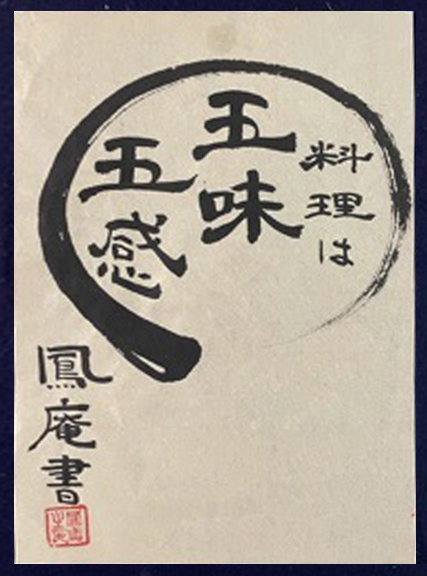 料理は
五味
五感
鳳庵書